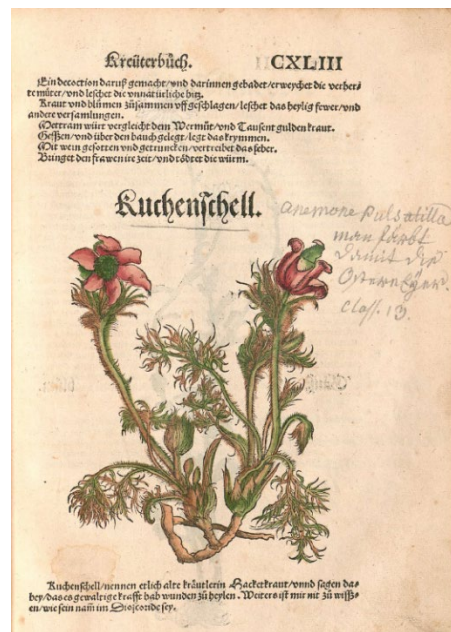 Kreüterbůch. CXLIII
Ein decoction daruß gemacht/vnd darinnen gebadet/erweychet die verher-
te můter/vnd leschet die vnnatürliche hitz.
Kraut vnd blůmen zůsammen vffgeschlagen/leschet das heylig fewer/vnd
andere versamlungen.
Mettram würt vergleicht dem Wermůt/vnd Tausent gulden kraut.
Gessen/vnd über den bauch gelegt/legt das krymmen.
Mit wein gesotten vnd getruncken/vertreibet das feber.
Bringet den frawen ire zeit/vnd tödtet die würm.
Kuchenschell.
Anemone Pulsatilla
man färbt
damit die
Ostern Eyer.
Class. 13.
Kuchenschell/nennen etlich alte kräutlerin Hackerkraut/vnnd sagen das-
bey/das es gewaltige krafft hab wunden zů heylen. Weiters ist mir nit zů wiss-
en/wie sein nam im Dioscoride sey.